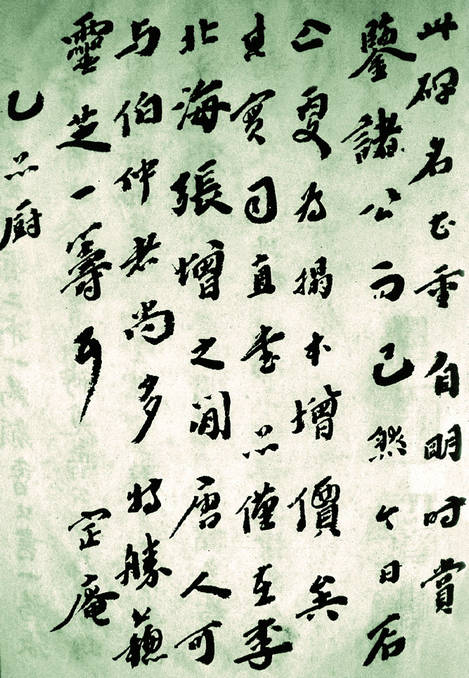 此碑名之重自明时賞
鑒諸公而已然今日石
亾更为搨本增價矣
其實司直書品僅在李
北海張增之間唐人可
与伯仲者尚多特勝蘓
靈芝一籌耳 定庵
乙品厨